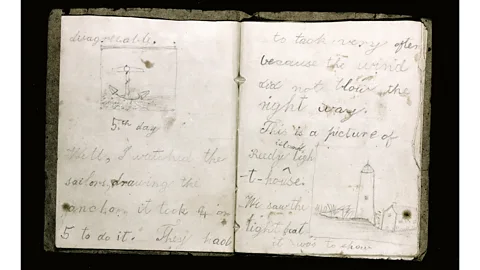 disagreeable.
5th day
Well, I watched the
sailors, drawing the
anchor. it took 4 or
5 to do it. They had
to tack very often
because the wind
did not blow the
right way.
This is a picture of
Reedy island ligh
-t-house.
We saw the
light but
it was to show